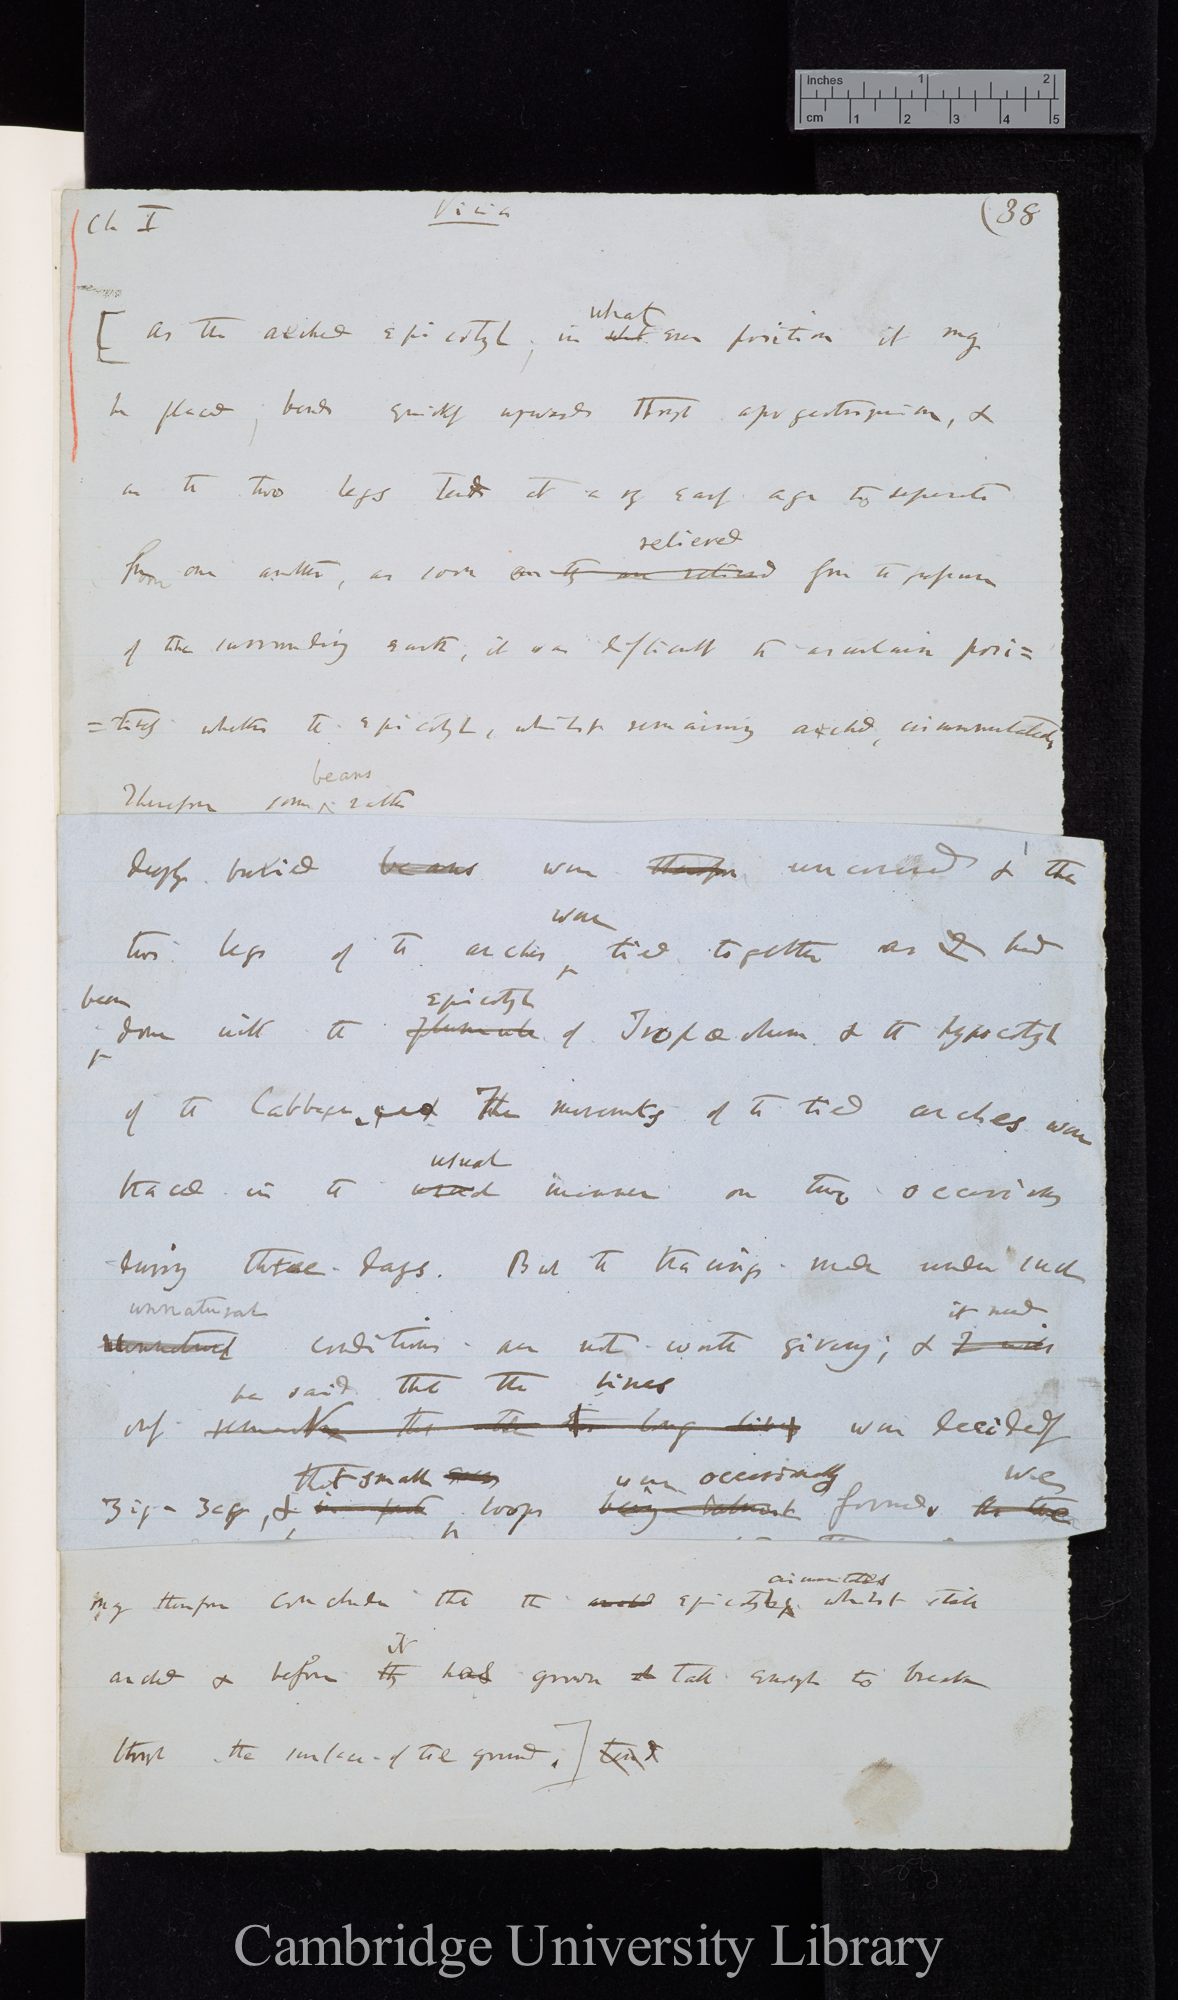 Inches 1 2
cm 1 2 3 4 5
Ch I Vicia (38
what
[ As the arched epicotyl, in what ever position it may
be placed, bends quickly upwards through apogeotropism, &
as the two legs tend at a very early age to separate
relieved
from one another, as soon as they are relieved from the pressure
of the surrounding earth, it was difficult to ascertain posi=
=tively whether the epicotyl, whilst remaining arched, circumnutated.
beans
Therefore some rather
deeply buried beans were therefore uncovered & the
were
two legs of the arches tied together as I had
been epicotyl
done with the plumule of Tropæolum & the hypocotyl
of the Cabbage, and The movements of the tied arches were
usual
traced in the usual manner on two occasions
during three days. But the tracings made under such
unnatural it need
unnatural conditions are not worth giving; & I will
be said that the lines
only remark that the long lines were decidedly
that small were occasionally We
zig-zag, & in parts loops being almost formed As the
circumnutates
may therefore conclude that the arched epicotyl whilst still
it
arched & before they has grown tall enough to break
through the surface of the ground.]
Cambridge University Library